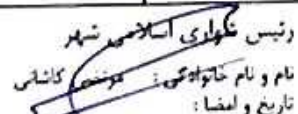 رئیس شورای اسلامی شهر
نام و نام خانوادگی: مرتضی کاشانی
تاریخ و امضا: